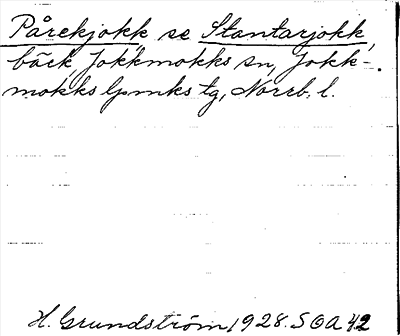 Pårekjokk se Stantarjokk,
bäck, Jokkmokks sn, Jokk-
mokks lpmks tg, Norrb. l.
H. Grundström 1928. SOA 42